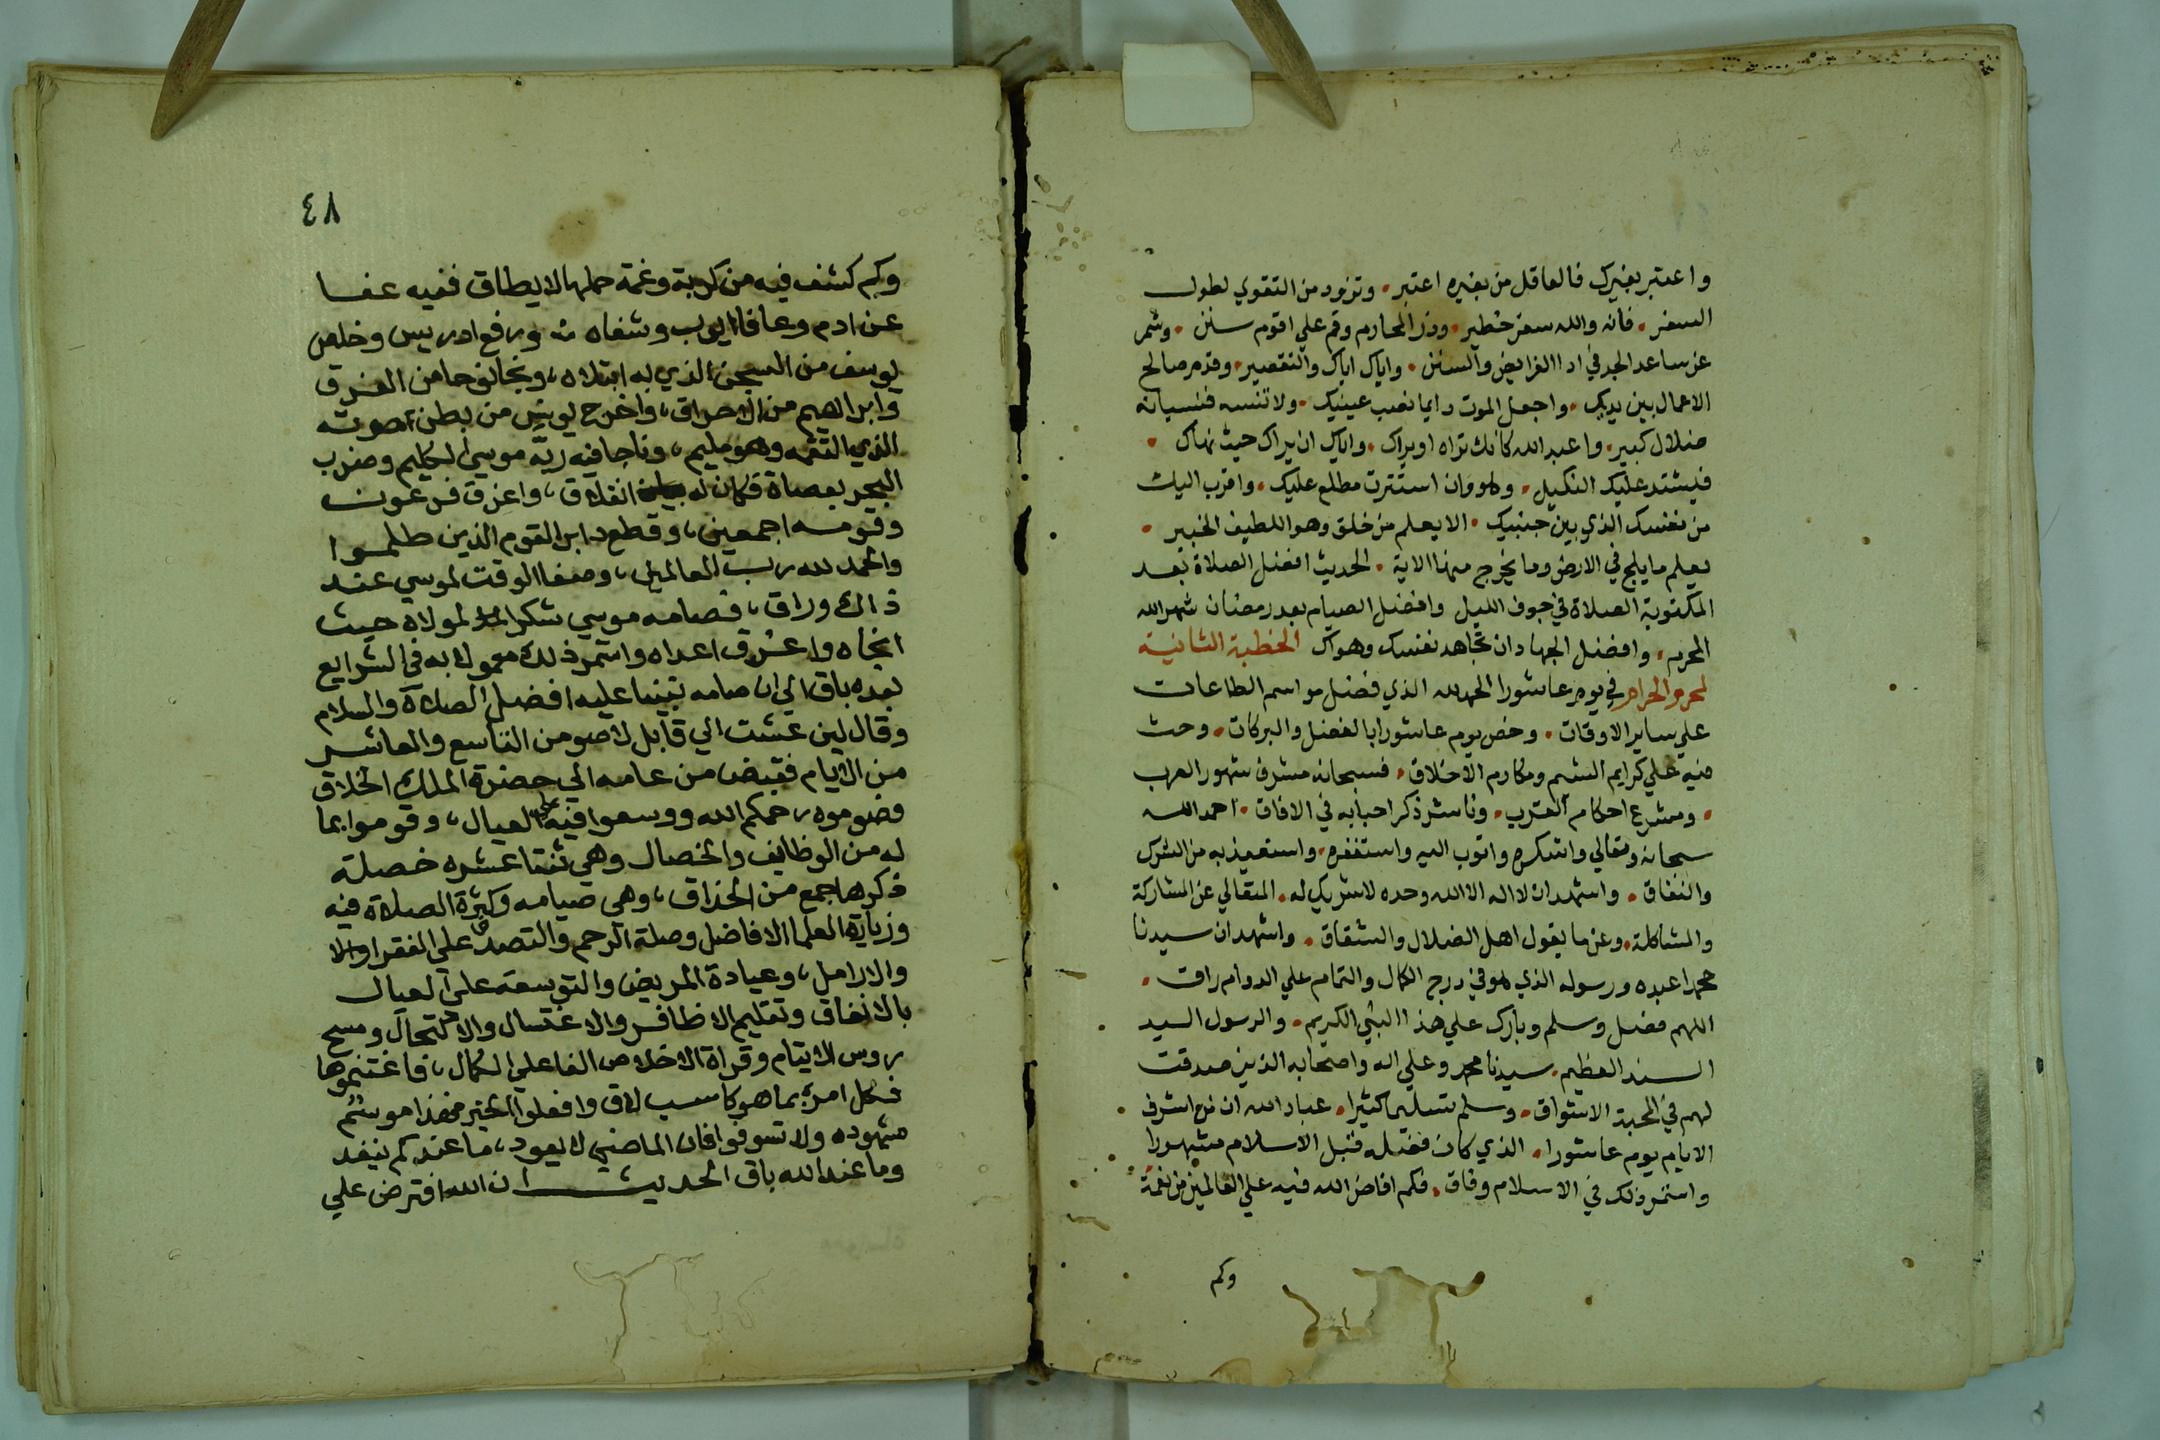 واعتبر بغيرك فالعاقل من بغيره اعتبر، وتزود من التقوي لطول
السفر، فانه والله سفر خطير، وذر المحارم وقم علي اقوم سنن، وشمر
عن ساعد الجد في ادا الفرايض والسنن، واياك اياك والتقصير، وقدم صالح
الاعمال بين يديك، واجعل الموت دايما نصب عينيك، ولا تنسه فنسيانه
ضلال كبير، واعبد الله كانك تراه او يراك، واياك ان يراك حيث نهاك،
فيشتد عليك النكيل، وهو وان استترت مطلع عليك، واقرب اليك
من نفسك الذي بين جنبيك، الا يعلم من خلق وهو اللطيف الخبير،
يعلم ما يلج في الارض وما يخرج منها الاية، الحديث افضل الصلاة بعد
المكتوبة الصلاة في جوف الليل وافضل الصيام بعد رمضان شهر الله
المحرم، وافضل الجهاد ان تجاهد نفسك وهواك الخطبة الثانية
لمحرم الحرام في يوم عاشورا الحمد لله الذي فضل مواسم الطاعات
علي ساير الاوقات، وخص يوم عاشورا بالفضل والبركات، وحث
فيه علي كرايم الشيم ومكارم الاخلاق، فسبحانه مشرف شهور العرب
، ومشرع احكام القرب، وناشر ذكر احبابه في الافاق، احمد الله
سبحانه وتعالي واشكره واتوب اليه واستغفره، واستعيذ به من الشرك
والنفاق، واشهد ان لا اله الا الله وحده لا شريك له، المتعالي عن المشاركة
والمشاكلة، وعن ما يقول اهل الضلال والشقاق، واشهد ان سيدنا
محمدا عبده ورسوله الذي هو في درج الكمال والتمام علي الدوام راق،
اللهم فصل وسلم وبارك علي هذا النبي الكريم، والرسول السيد
السند العظيم، سيدنا محمد وعلي اله واصحابه الذين صدقت
لهم في المحبة الاشواق، وسلم تسليما كثيرا، عباد الله ان من اشرف
الايام يوم عاشورا، الذي كان فضله قبل الاسلام مشهورا
واستمر ذلك في الاسلام وفاق، فكم افاض الله فيه علي العالمين من نعمة
وكم
٤٨
وكم كشف فيه من كربة وغمة حملها لا يطاق ففيه عفا
عن ادم وعافا ايوب وشفاه ورفع ادريس وخلص
يوسف من السجن الذي به ابتلاه، ونجا نوحا من الغرق
وابراهيم من الاحراق، واخرج يونس من بطن حوته
الذي التقمه وهو مليم، وناجا فيه ربه موسي الكليم وضرب
البحر بعصاة فكان له انفلاق، واغرق فرعون
وقومه اجمعين، وقطع دابر القوم الذين ظلموا
والحمد لله رب العالمين، وصفا الوقت لموسي عند
ذالك وراق، فصامه موسي شكرا لمولاه حيث
انجاه واغرق اعداه واستمر ذلك معمولا به في الشرايع
بعده باق الي ان صامه نبينا عليه افضل الصلاة والسلام
وقال لين عشت الي قابل لاصومن التاسع والعاشر
من الايام فقبض من عامه الي حضرة الملك الخلاق
فصوموه رحمكم الله ووسعوا فيه علي العيال، وقوموا بما
له من الوظايف والخصال وهي ثنتا عشره خصلة
ذكرها جمع من الحذاق، وهي صيامه وكثرة الصلاة فيه
وزيارة العلما الافاضل وصلة الرحم والتصدق علي الفقرا والا
والارامل، وعيادة المريض والتوسعة علي العيال
بالانفاق وتقليم الاظافر والاغتسال والاكتحال ومسح
روس الايتام وقراة الاخلاص الفا علي الكمال، فاغتنموها
فكل امرئ بما هو كاسب لاق وافعلوا الخير فهذا موسم
مشهوده ولا تسوفوا فان الماضي لا يعود، ما عندكم ينفد
وما عند الله باق الحديث ان الله افترض علي